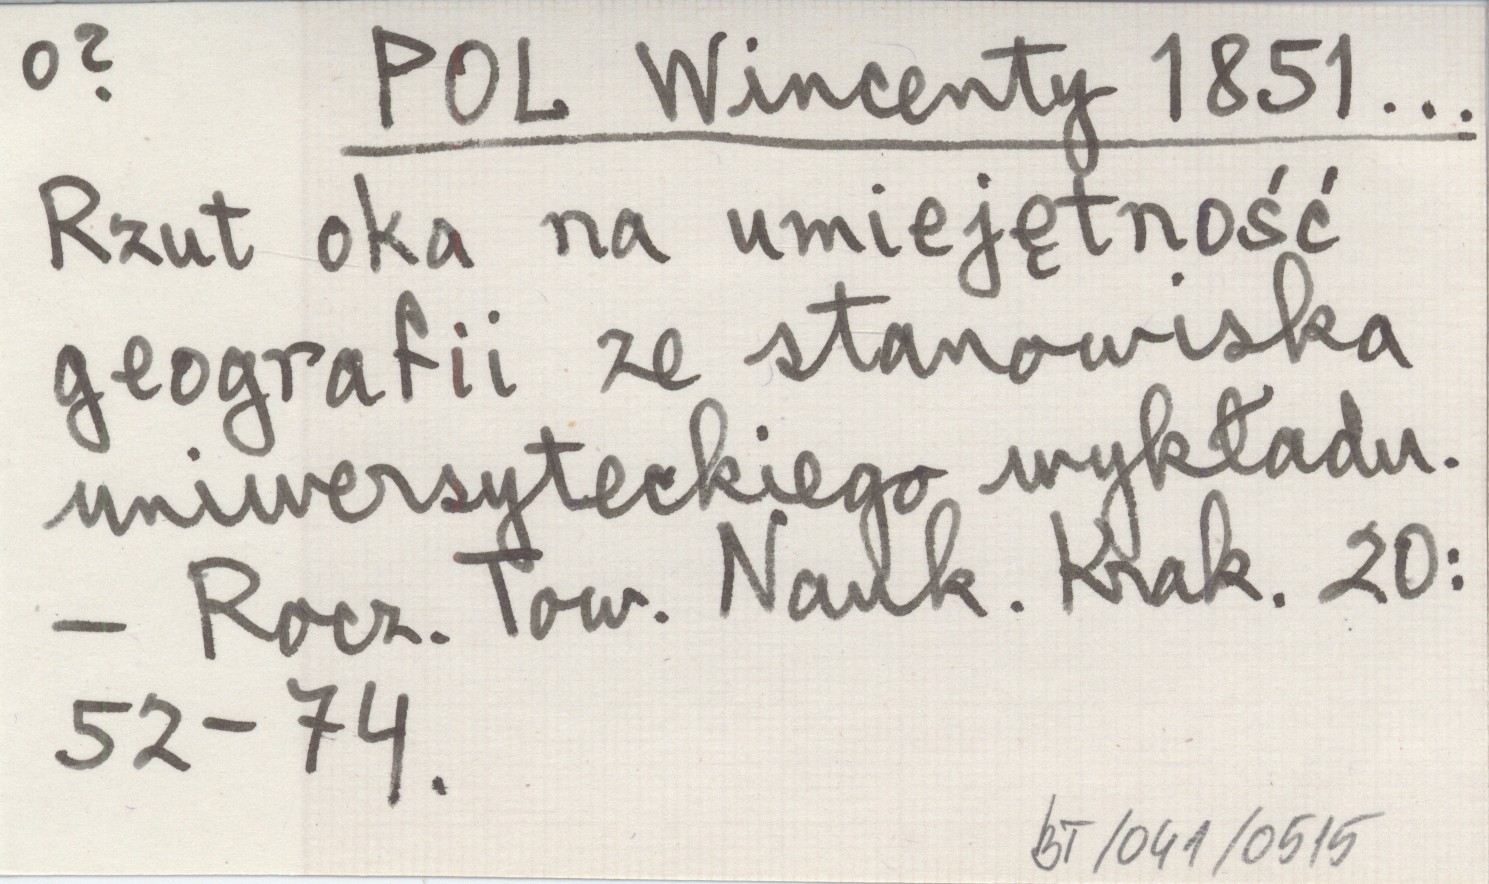 o? POL Wincenty 1851...
Rzut oka na umiejętność
geografii ze stanowiska
uniwersyteckiego wykładu.
— Rocz. Tow. Nauk. Krak. 20:
52-74.
BT/041/0515